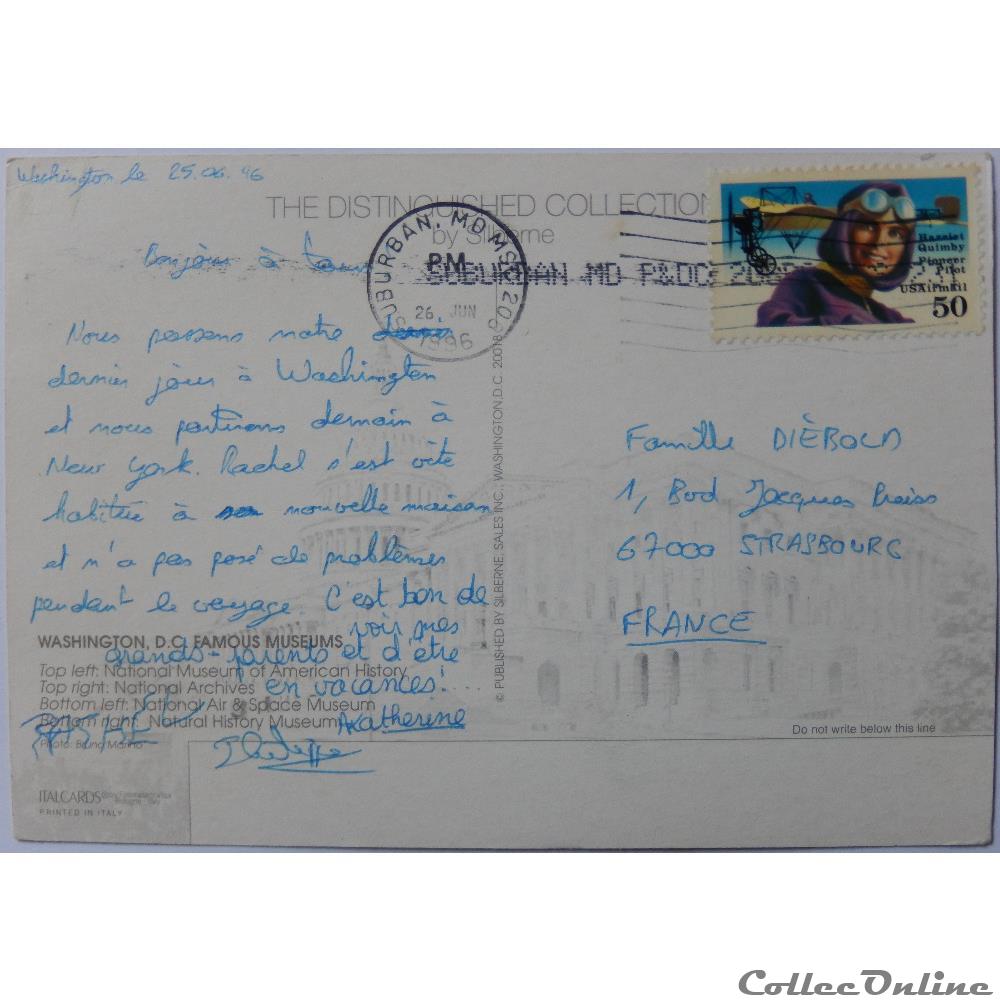 Washington le 25.06.96
THE DISTINGUISHED COLLECTION
by Silberne
Bonjour à tous
SUBURBAN, MD MSC 208
PM
26 JUN
1996
SUBURBAN MD P&DC
Harriet
Quimby
Pioneer
Pilot
USAirmail
50
Nous passons notre
dernier jour à Washington
et nous partirons demain à
New York. Rachel s'est vite
habituée à sa nouvelle maison
et n'a pas posé de problèmes
pendant le voyage. C'est bon de
voir mes
grands-parents et d'être
en vacances!
Katherine
Famille DIÈBOLD
1, Bvd Jacques Preiss
67000 STRASBOURG
FRANCE
WASHINGTON, D.C. FAMOUS MUSEUMS
Top left: National Museum of American History
Top right: National Archives
Bottom left: National Air & Space Museum
Bottom right: Natural History Museum
Photo: Bruno Marino
ITALCARDS
PRINTED IN ITALY
© PUBLISHED BY SILBERNE, SALES INC., WASHINGTON, D.C. 20018
Do not write below this line
CollecOnline